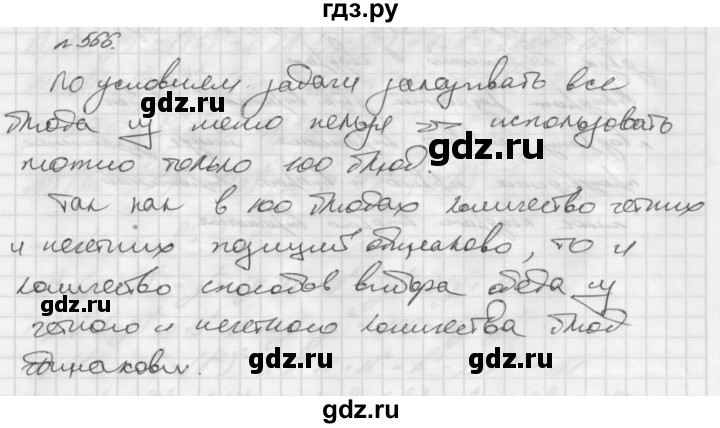 гдз.ру
n 566.
По условиям задачи заказывать все
gdz.ru gdz.ru
блюда из меню нельзя ⇒ использовать
gdz.ru
можно только 100 блюд.
Так как в 100 блюдах количество четных
и нечетных позиций одинаково, то и
gdz.ru
количество способов выбора обеда из
gdz.ru
четного и нечетного количества блюд
одинаковы.
gdz.ru gdz.ru
gdz.ru